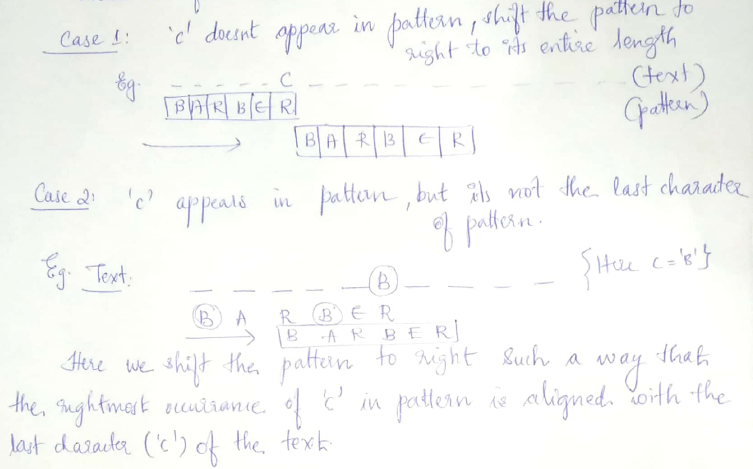 Case 1: 'c' doesnt appear in pattern, shift the pattern to
right to its entire length
Eg. _ _ _ _ _ C _ _ _ _ _ _ _ _ (text)
B A R B E R (pattern)
B A R B E R
Case 2: 'c' appears in pattern, but its not the last character
of pattern.
Eg. Text: _ _ _ _ _ B _ _ _ _ {Here C = 'B'}
B A R B E R
B A R B E R
Here we shift the pattern to right such a way that
the rightmost occurrance of 'c' in pattern is aligned with the
last character ('c') of the text.